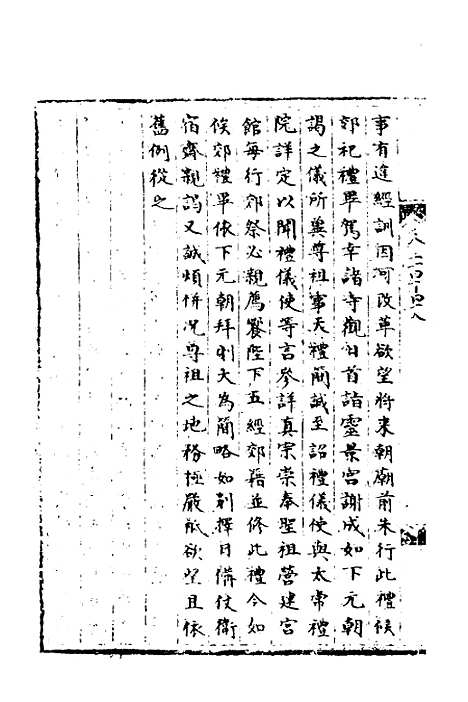 事有違經訓因可改革欲望將来朝廟前未行此禮候
郊祀禮畢駕幸諸寺觀日首詣靈景宮謝成如下元朝
謁之儀所冀尊祖事天禮簡誠至詔禮儀使與太常禮
院詳定以聞禮儀使等言參詳真宗崇奉聖祖營建宮
館每行郊祭必親薦饗陛下五經郊籍並修此禮今如
俟郊禮畢依下元朝拜則大為簡略如别擇日備仗衛
宿齋親謁又誠煩併况尊祖之地務極嚴祇欲望且依
舊例從之